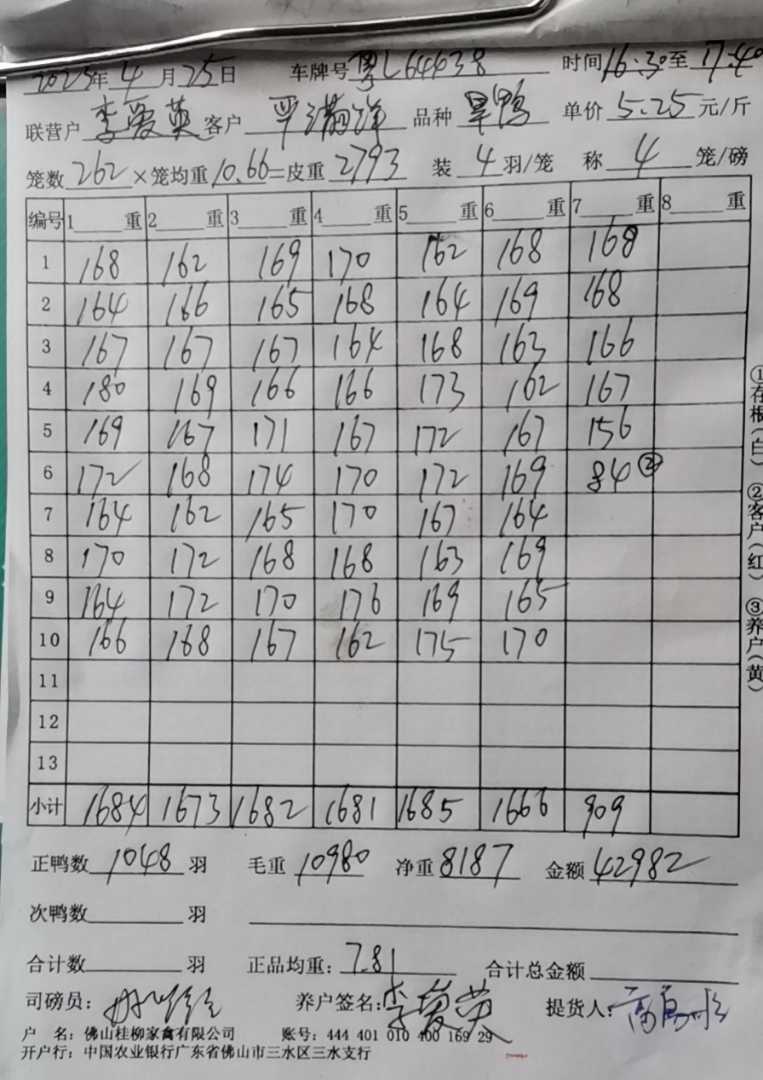 2025年4月25日 车牌号 粤L64638 时间16:30至17:40
联营户 李爱英 客户 品种 旱鸭 单价 5.25 元/斤
笼数 262 ×笼均重 10.66 =皮重 2793 装 4 羽/笼 称 4 笼/磅
编号 1 重 2 重 3 重 4 重 5 重 6 重 7 重 8 重
1 168 162 169 170 162 168 168
2 164 166 165 168 164 169 168
3 167 167 167 164 168 163 166
4 180 169 166 166 173 162 167
5 169 167 171 167 172 167 156
6 172 168 174 170 172 169 84 ②
7 164 162 165 170 167 164
8 170 172 168 168 163 169
9 164 172 170 176 169 165
10 166 168 167 162 175 170
11
12
13
小计 1684 1673 1682 1681 1685 1666 909
正鸭数 1048 羽 毛重 10980 净重 8187 金额 42982
次鸭数 羽
合计数 羽 正品均重: 7.81 合计总金额
司磅员: 养户签名: 李爱英 提货人:
户 名: 佛山桂柳家禽有限公司 账号: 444 401 010 400 169 29
开户行: 中国农业银行广东省佛山市三水区三水支行
①存根(白) ②客户(红) ③养户(黄)